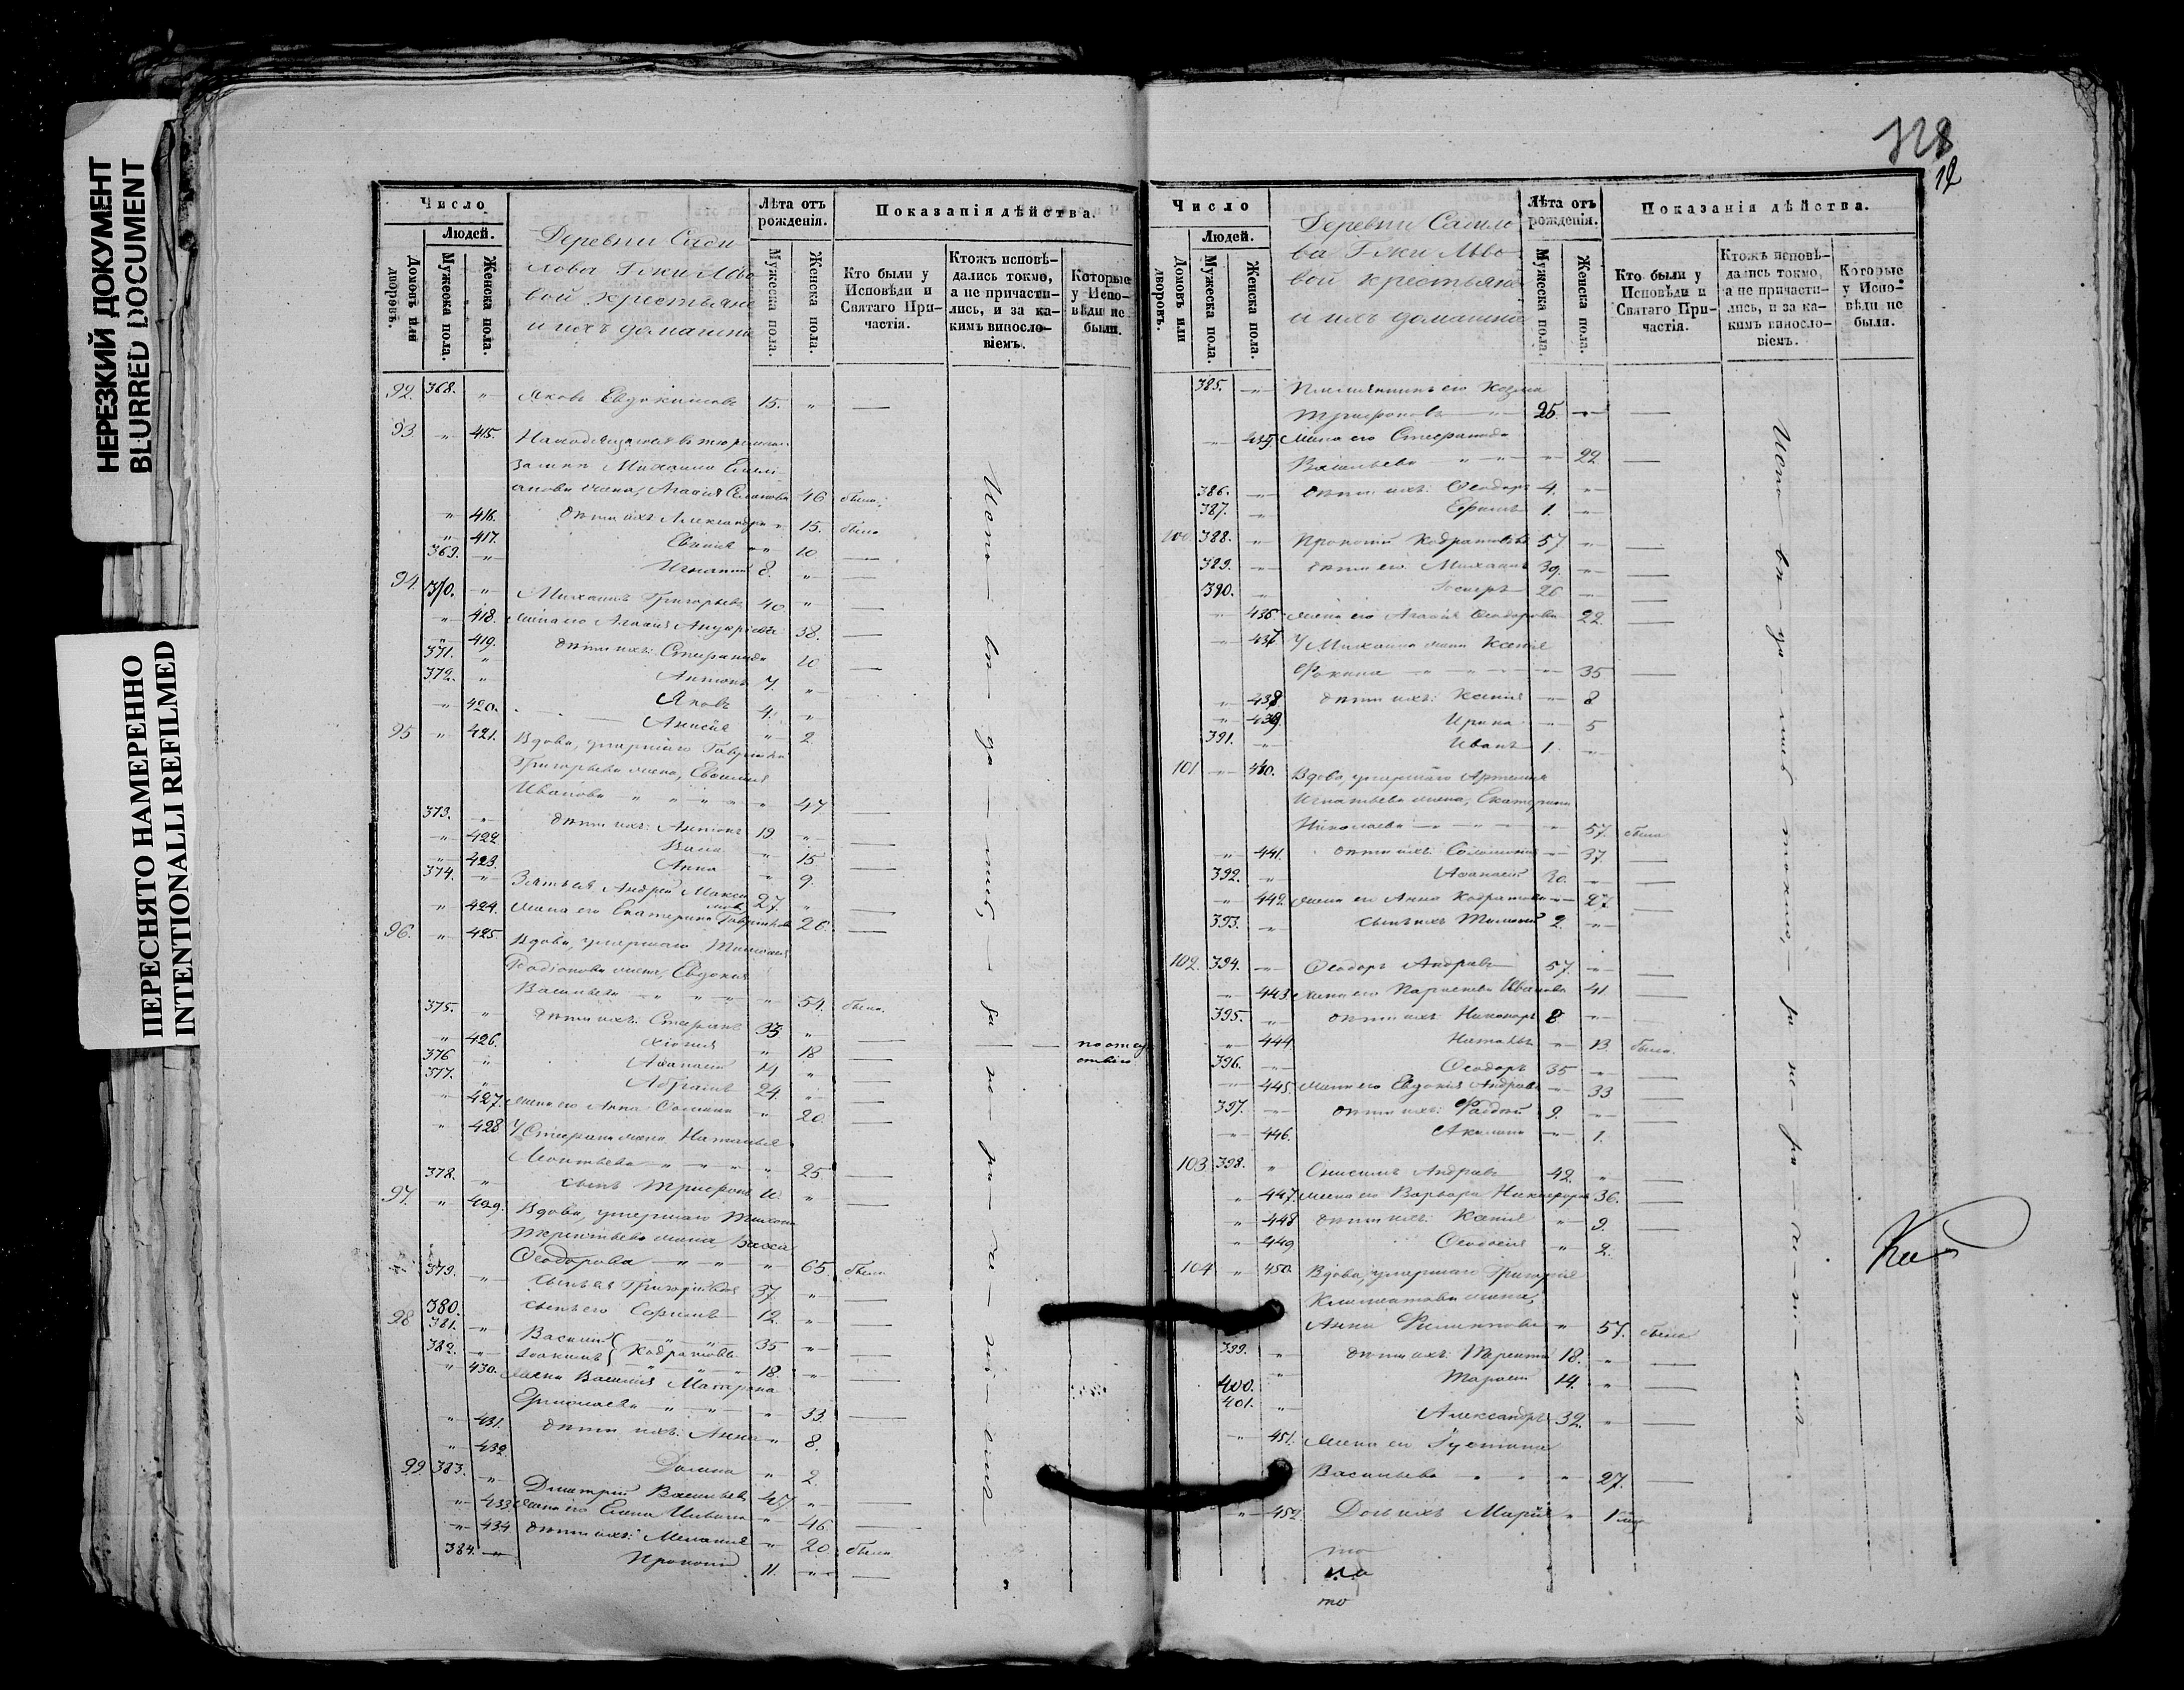 НЕРЕЗКИЙ ДОКУМЕНТ
BLURRED DOCUMENT
ПЕРЕСНЯТО НАМЕРЕННО
INTENTIONALLI REFILMED
Число
Людей.
Домовъ или дворовъ.
Мужеска пола.
Женска пола.
Деревни Сади
лова Г-жи Льво
вой крестьяне
и ихъ домашніе
Лѣта отъ рожденія.
Мужеска пола.
Женска пола.
Показанія дѣйства.
Кто были у Исповѣди и Святаго Причастія.
Ктожъ исповѣдались токмо, а не причастились, и за какимъ винословіемъ.
Которые у Исповѣди не были.
92. 368. " Яковъ Евдокимовъ 15. "
93 " 415. Находящагося въ тюремномъ
замкѣ Михаила Емели
анова жена, Агаѳія Семенова 46 была
" 416. дѣти ихъ: Александра " 15. была
" 417. Евѳимія " 10
369. " Игнатій 8. "
94 370. " Михаилъ Григорьевъ 40. "
" 418. жена его Агаѳія 38.
" 419. дѣти ихъ: Стефанида 10
371. " Антонъ 7. "
372. " Яковъ 4. "
" 420. Анисія " 2.
95 " 421. Вдова, умершаго Гавриила
Григорьева жена, Евѳимія
Иванова " " " " 47.
373. " дѣти ихъ: Антонъ 19 "
" 422 Васса " 15
" 423. Анна " 9.
374. " Зять ея Андрей Макси
мовъ 27. "
" 424. жена его Екатерина Гаврилова 26.
96. " 425. Вдова, умершаго Тимоѳея
Родіонова жена, Евдокія
Васильева " " " " 54. была.
375. " дѣти ихъ: Стефанъ 33 "
" 426. Хіонія " 18 по отсу
376 " Аѳанасій 14 " ствію
377. " Абрамъ 24. "
" 427. жена его Анна " 20.
" 428 У Стефана жена Наталья
Леонтьева " " " 25.
378. " сынъ Трифонъ "
97. " 429. Вдова, умершаго Тихона
Терентьева жена Васса
Ѳеодорова " " " 65. была
379. " сынъ ея Григорій 37. "
380. сынъ его Софронъ 12. "
98 381. " Василій
382. " Іоакимъ } Кодратовы 35 "
18. "
" 430. жена Василія Матрона
Ермолаева " " " 33.
" 431. дѣти ихъ: Анна " 8.
" 432 Домна " 2.
99 383. " Димитрій Васильевъ 47 "
" 433 жена его Елена " 46
" 434 дѣти ихъ: Меланія " 20 была
384. " Прокопій 11. "
Исповѣдались токмо, за нерадѣніемъ
328
12
Число
Людей.
Домовъ или дворовъ.
Мужеска пола.
Женска пола.
Деревни Садило
ва Г-жи Льво
вой крестьяне
и ихъ домашніе
Лѣта отъ рожденія.
Мужеска пола.
Женска пола.
Показанія дѣйства.
Кто были у Исповѣди и Святаго Причастія.
Ктожъ исповѣдались токмо, а не причастились, и за какимъ винословіемъ.
Которые у Исповѣди не были.
385. " Племянникъ его Козма
Трифоновъ 25. "
" 435. жена его Стефанида
Васильева " " " 22
386. " дѣти ихъ: Ѳеодоръ 4. "
387. " Ефимъ 1. "
100 388. " Прокопій Кодратовъ 57 "
389. " дѣти его Михаилъ 39. "
390. " Іосифъ 26 "
" 436. жена его Агаѳія Ѳеодорова 22.
" 437. У Михаила жена Ксенія
Фокина " " " " 35
" 438 дѣти ихъ: Ксенія " 8
" 439 Ирина " 5
391. " Иванъ 1. "
101 " 440. Вдова, умершаго Артемія
Игнатьева жена, Екатерина
Николаева " " " 57. была
" 441. дѣти ихъ: Соломонія " 37.
392. " Аѳанасій 30. "
" 442. жена его Анна Кодратова " 27
393. " сынъ ихъ Тимоѳей 2. "
102. 394. " Ѳеодоръ Андреевъ 57. "
" 443. жена его Параскева Иванова 41.
395. " дѣти ихъ: Никаноръ 8 "
" 444. Наталья " 13. была.
396. " Ѳеодоръ 35 "
" 445. жена его Евдокія Андреева " 33
397. " дѣти ихъ: Фаддей 9. "
" 446. Акилина " 1.
103 398. " Онисимъ Андреевъ 42. "
" 447. жена его Варвара Никифорова 36.
" 448 дѣти ихъ: Ксенія " 9.
" 449 Ѳеодосія " 2.
104 " 450. Вдова, умершаго Григорія
жена,
Анна Филиппова " 57. была
399. " дѣти ихъ: Терентій 18. "
400. " Тарасій 14. "
401. " Александръ 32. "
" 451. жена его Іустина
Васильева " " " 27.
" 452. Дочь ихъ Марія " 1 года
Исповѣдались токмо, за нерадѣніемъ